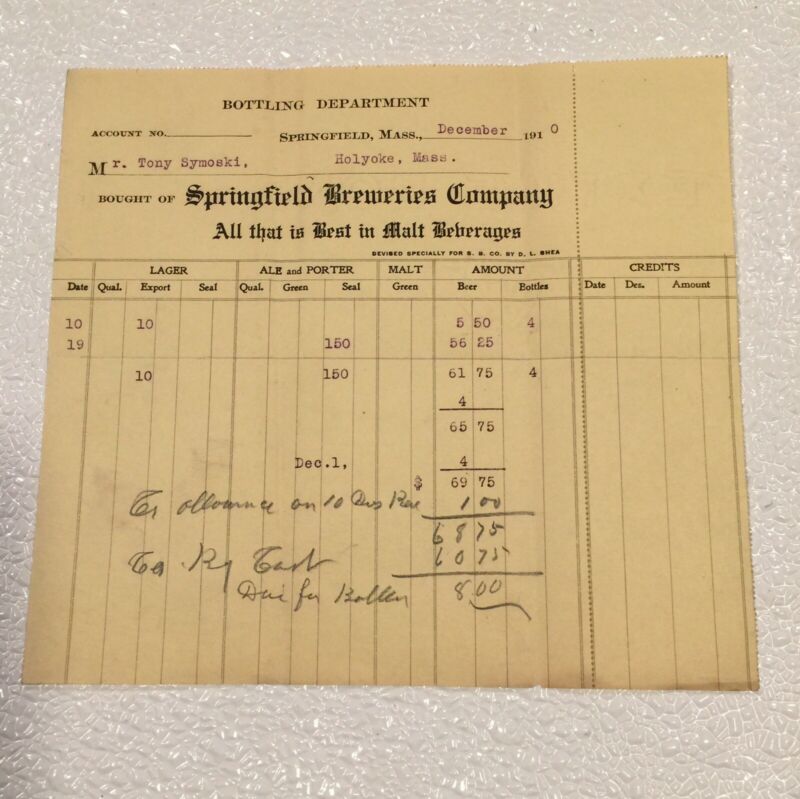 BOTTLING DEPARTMENT
ACCOUNT NO. SPRINGFIELD, MASS., December 1910
Mr. Tony Symoski, Holyoke, Mass.
BOUGHT OF Springfield Breweries Company
All that is Best in Malt Beverages
DEVISED SPECIALLY FOR S. B. CO. BY D. L. SHEA
LAGER ALE and PORTER MALT AMOUNT CREDITS
Date Qual. Export Seal Qual. Green Seal Green Beer Bottles Date Des. Amount
10 10 5 50 4
19 150 56 25
10 150 61 75 4
4
65 75
Dec.1, 4
$ 69 75
Cr allowance on 10 1 00
68 75
Cash 60 75
Due for 8 00